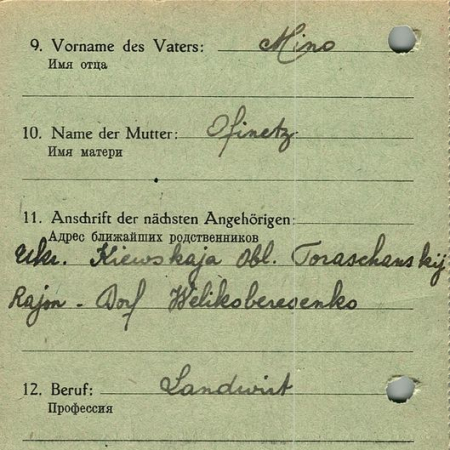 9. Vorname des Vaters: Mino
Имя отца
10. Name der Mutter: Ofinetz
Имя матери
11. Anschrift der nächsten Angehörigen:
Адрес ближайших родственников
Ukr. Kiewskaja Obl. Toraschanskij
Rajon - Dorf Weliksberesenko
12. Beruf: Landwirt
Профессия